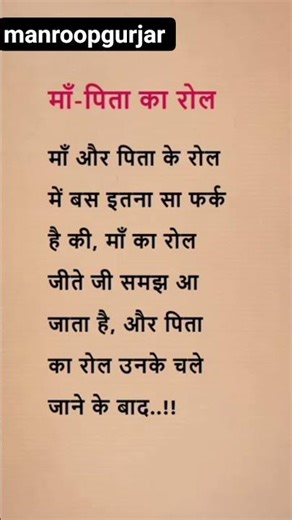 manroopgurjar
माँ-पिता का रोल
माँ और पिता के रोल
में बस इतना सा फर्क
है की, माँ का रोल
जीते जी समझ आ
जाता है, और पिता
का रोल उनके चले
जाने के बाद..!!